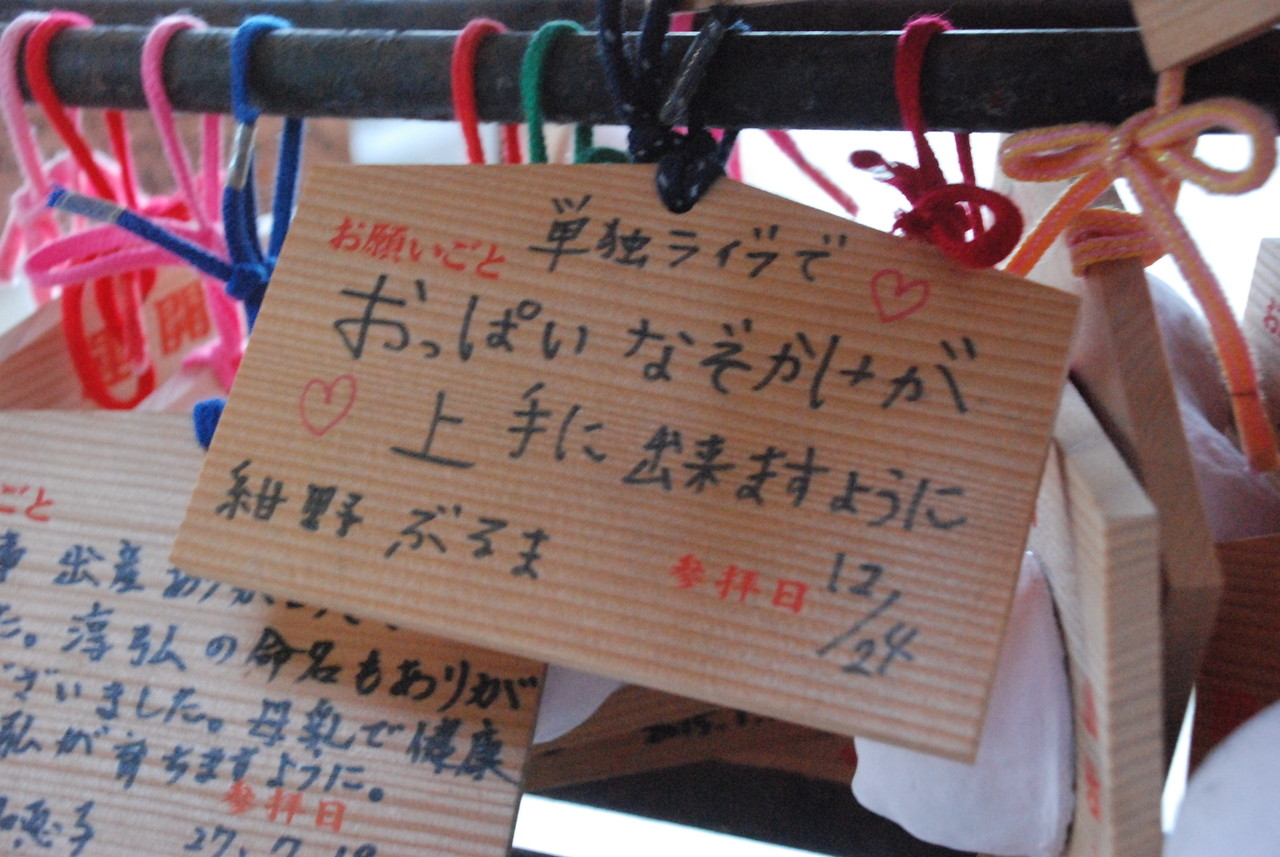 お願いごと
単独ライブで
おっぱいなぞかけが
上手に出来ますように
紺野ぶるま
参拝日 12/24
ごと
出産あ
た。淳弘の命名もありが
ございました。母乳で健康
私が育ちますように。
恵子
参拝日
27.7.18
開